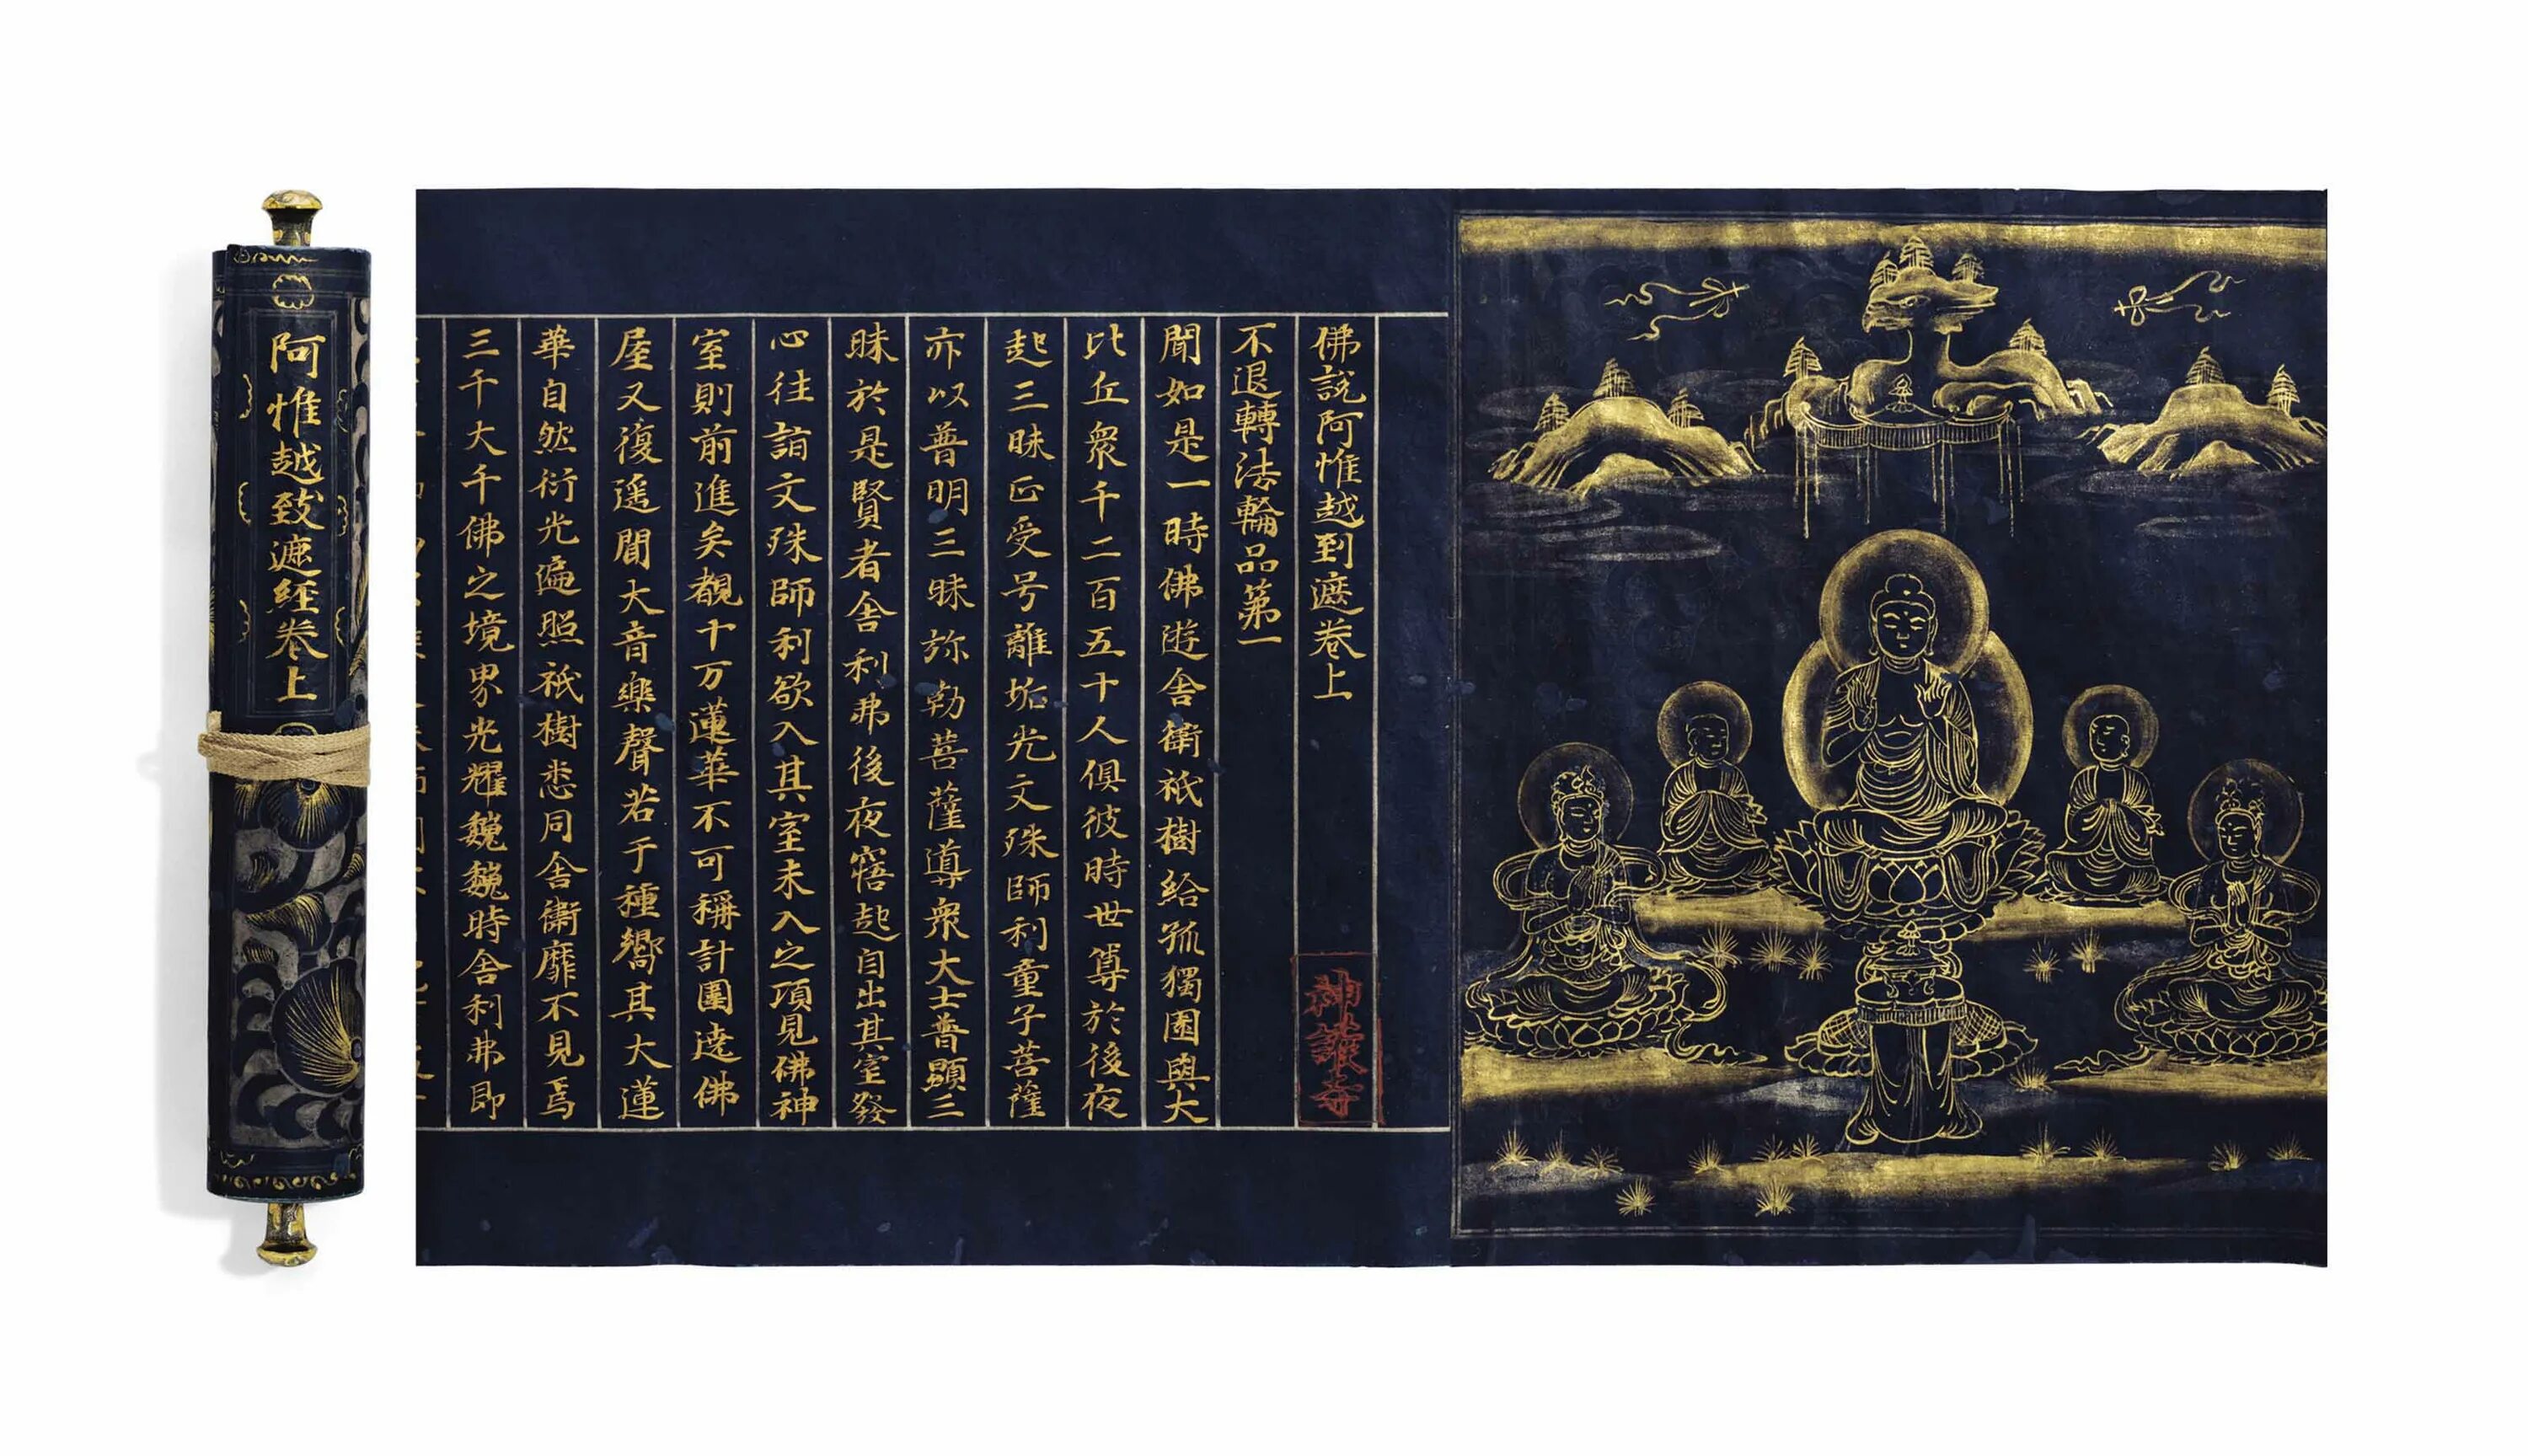 阿惟越致遮經卷上
佛說阿惟越到遮卷上
神護寺
不退轉法輪品第一
聞如是一時佛遊舍衛祇樹給孤獨園與大
比丘衆千二百五十人俱彼時世尊於後夜
起三昧正受号離垢光文殊師利童子菩薩
亦以普明三昧弥勒菩薩導衆大士普顯三
昧於是賢者舍利弗後夜寤起自出其室發
心往詣文殊師利欲入其室未入之項見佛神
室則前進矣覩十万蓮華不可稱計圍遶佛
屋又復遥聞大音樂聲若干種嚮其大蓮
華自然衍光遍照祇樹悉同舍衛靡不見焉
三千大千佛之境界光耀巍巍時舍利弗即